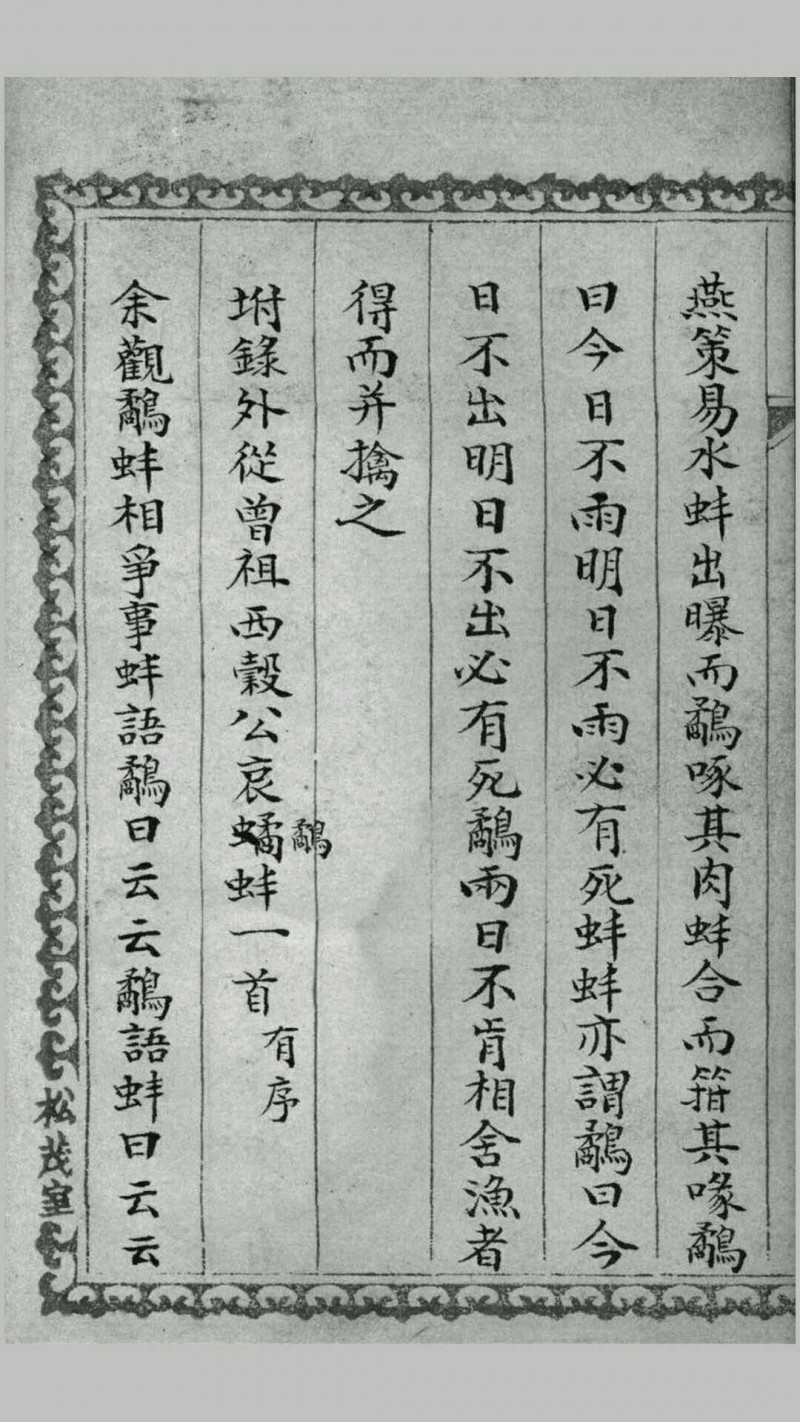 燕策易水蚌出曝而鷸啄其肉蚌合而箝其喙鷸
曰今日不雨明日不雨必有死蚌蚌亦謂鷸曰今
日不出明日不出必有死鷸兩曰不肯相舍漁者
得而并擒之
坿錄外從曾祖西穀公哀鷸蚌一首有序
余觀鷸蚌相爭事蚌語鷸曰云云鷸語蚌曰云云
松茂室